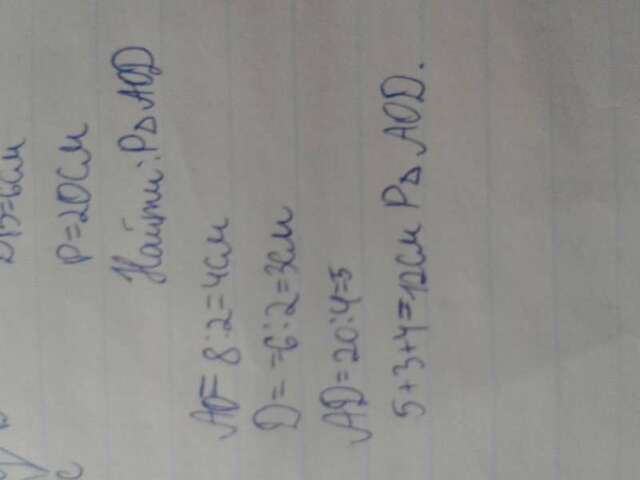 DB=6см
с
P=20см
Найти: P△ AOD
AO= 8:2=4см
D= =6:2=3см
AD=20:4=5
5+3+4=12см P△ AOD.